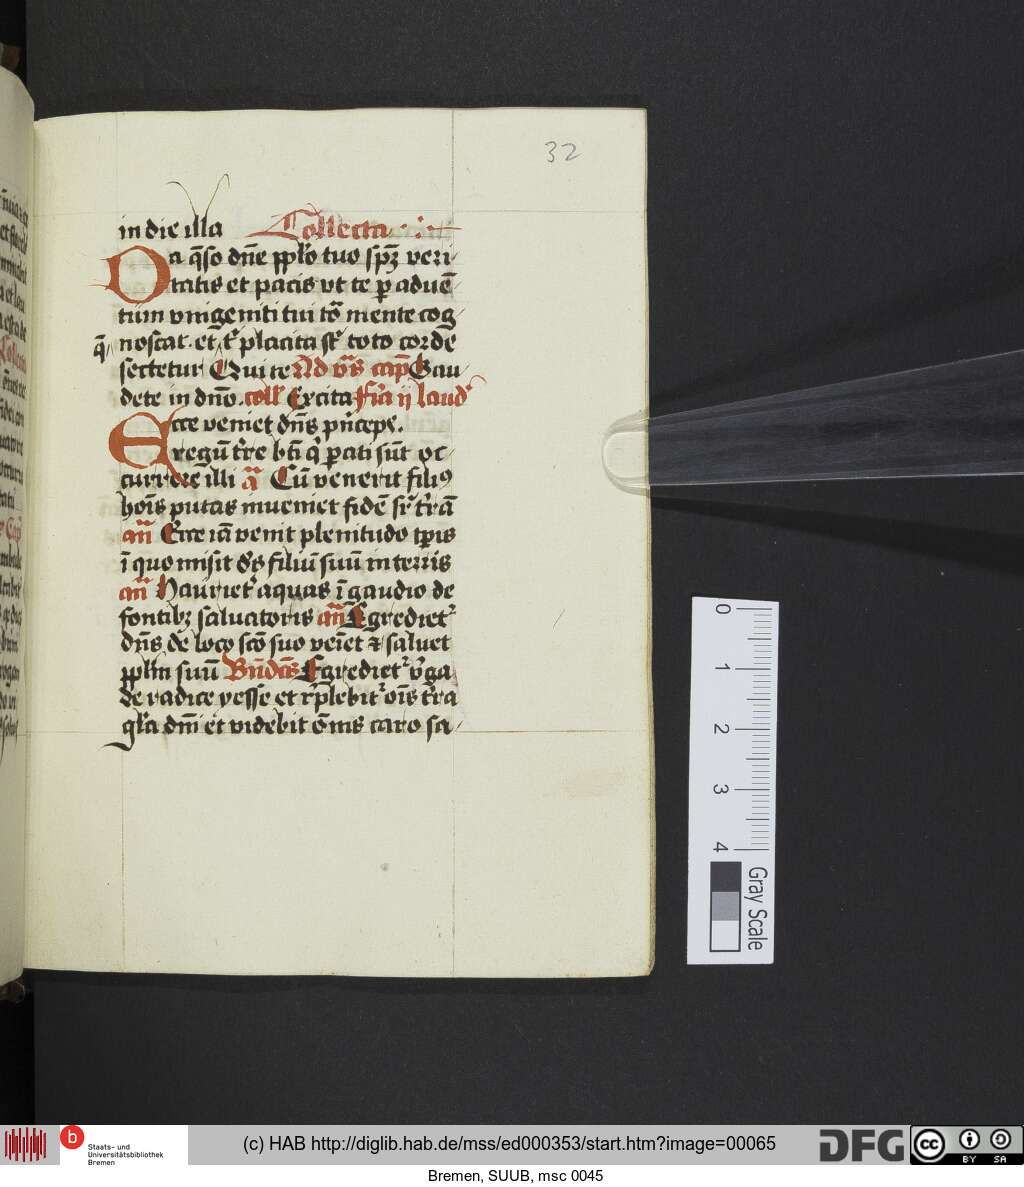 32
in die illa Collecta
Da q̄so dn̄e pplo tuo spz veri
tatis et pacis vt te p aduē
tum vnigeniti tui tō mente cog
noscat. et q̄ t' placita st' toto corde
sectetur Qui te Ad v'as cap Gau
dete in dn̄o. coll' Excita F'ia ij laud'
Ecce veniet dn̄s pn̄ceps.
regū t're bt̄i q' pati sūt oc
currere illi a Cū venerit filiꝰ
hoīs putas inueniet fidē sr' t'rā
an̄ Ecce iā venit plenitudo tp̄is
ī quo misit d's filiū suū in terris
an̄ Hauriet' aquas ī gaudio de
fontibꝫ saluatoris an̄ Egrediet'
dn̄s de loco scō suo veīet ⁊ saluet
pplm suū Bn̄dcūs Egrediet' v'ga
de radice yesse et r̄plebit' oīs t'ra
gl'a dn̄i et videbit ōnis caro sa
0
1
2
3
4
Gray Scale
b
Staats- und
Universitätsbibliothek
Bremen
(c) HAB http://diglib.hab.de/mss/ed000353/start.htm?image=00065
DFG
cc BY SA
Bremen, SUUB, msc 0045